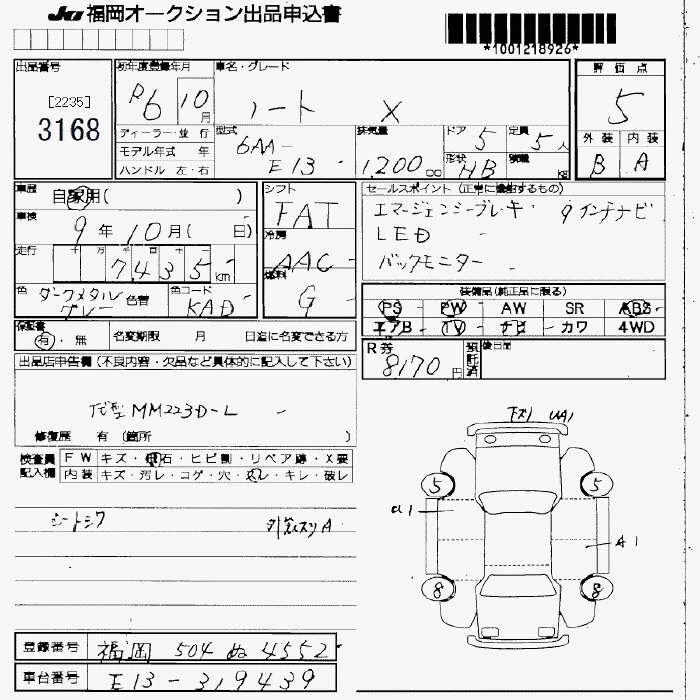 JU 福岡オークション出品申込書
*1001218926*
出品番号 初年度登録年月 車名・グレード 評価点
[2235] R6 10月 ノート X 5
3168
ディーラー・並行 型式 排気量 ドア 定員 外装 内装
モデル年式 年 6AA- 1,200 cc 5 5人 B A
ハンドル 左・右 E13 形状 HB 積載 kg
車歴 自家用( ) シフト FAT セールスポイント (正常に機能するもの)
車検 9年10月( 日) エマージェンシーブレーキ 9インチナビ
冷房 AAC LED
走行 十 万 千 百 十 バックモニター
7,435km 燃料 G
色 ダークメタルグレー 色替 色コード KAD 装備品(純正品に限る)
PS PW AW SR ABS
エアB TV ナビ カワ 4WD
保証書 有・無 名変期限 月 日迄に名変できる方
R券 8170円 預託済 後日
出品店申告欄 (不良内容・欠品など具体的に記入して下さい)
MM223D-L
修復歴 有 (箇所 )
検査員記入欄 FW キズ・飛石・ヒビ割・リペア跡・X要
内装 キズ・汚レ・コゲ・穴・スレ・キレ・破レ
シートシワ A
下ズリ UA1
5 5
U1 A1
8 8
登録番号 福岡 504 ぬ 4552
車台番号 E13-319439